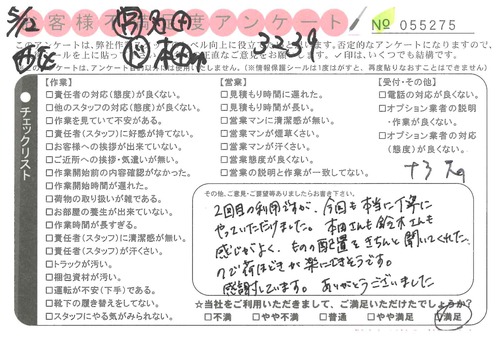 5/12
お客様不満足度アンケート
№ 055275
西区
3239
このアンケートは、弊社作
ベル向上に役立て
います。否定的なアンケートになりますので、
直なご意見をお願
✓印は、いくつでも結構です。
(※情報保護シールは1度はがすと、再度貼りなおすことはできません)
チェックリスト
【作業】
□責任者の対応(態度)が良くない。
□他のスタッフの対応(態度)が良くない。
□作業を見ていて不安がある。
□責任者(スタッフ)に好感が持てない。
□お客様への挨拶が出来ていない。
□ご近所への挨拶・気遣いが無い。
□作業開始前の内容確認がなかった。
□作業開始時間が遅れた。
□荷物の取り扱いが雑である。
□お部屋の養生が出来ていない。
□作業時間が長すぎる。
□責任者(スタッフ)に清潔感が無い。
□責任者(スタッフ)が汗くさい。
□トラックが汚い。
□梱包資材が汚い。
□運転が不安(下手)である。
□靴下の履き替えをしてない。
□スタッフにやる気がみられない。
【営業】
□見積もり時間に遅れた。
□見積もり時間が長い。
□営業マンに清潔感が無い。
□営業マンが煙草くさい。
□営業マンが汗くさい。
□営業態度が良くない。
□営業の説明と作業が一致してない。
【受付・その他】
□電話の対応が良くない。
□オプション業者の説明
・作業が良くない。
□オプション業者の対応
(態度)が良くない。
その他、ご意見・ご要望等ありましたらお書き下さい。
2回目の利用ですが、今回も本当に丁寧に
やっていただけました。本田さんも鈴木さんも
感じがよく、ものの配置をきちんと聞いてくれた
ので荷ほどきが楽にできそうです。
感謝しています。ありがとうございました
☆当社をご利用いただきまして、ご満足いただけたでしょうか?
□不満 □やや不満 □普通 □やや満足 ☑満足